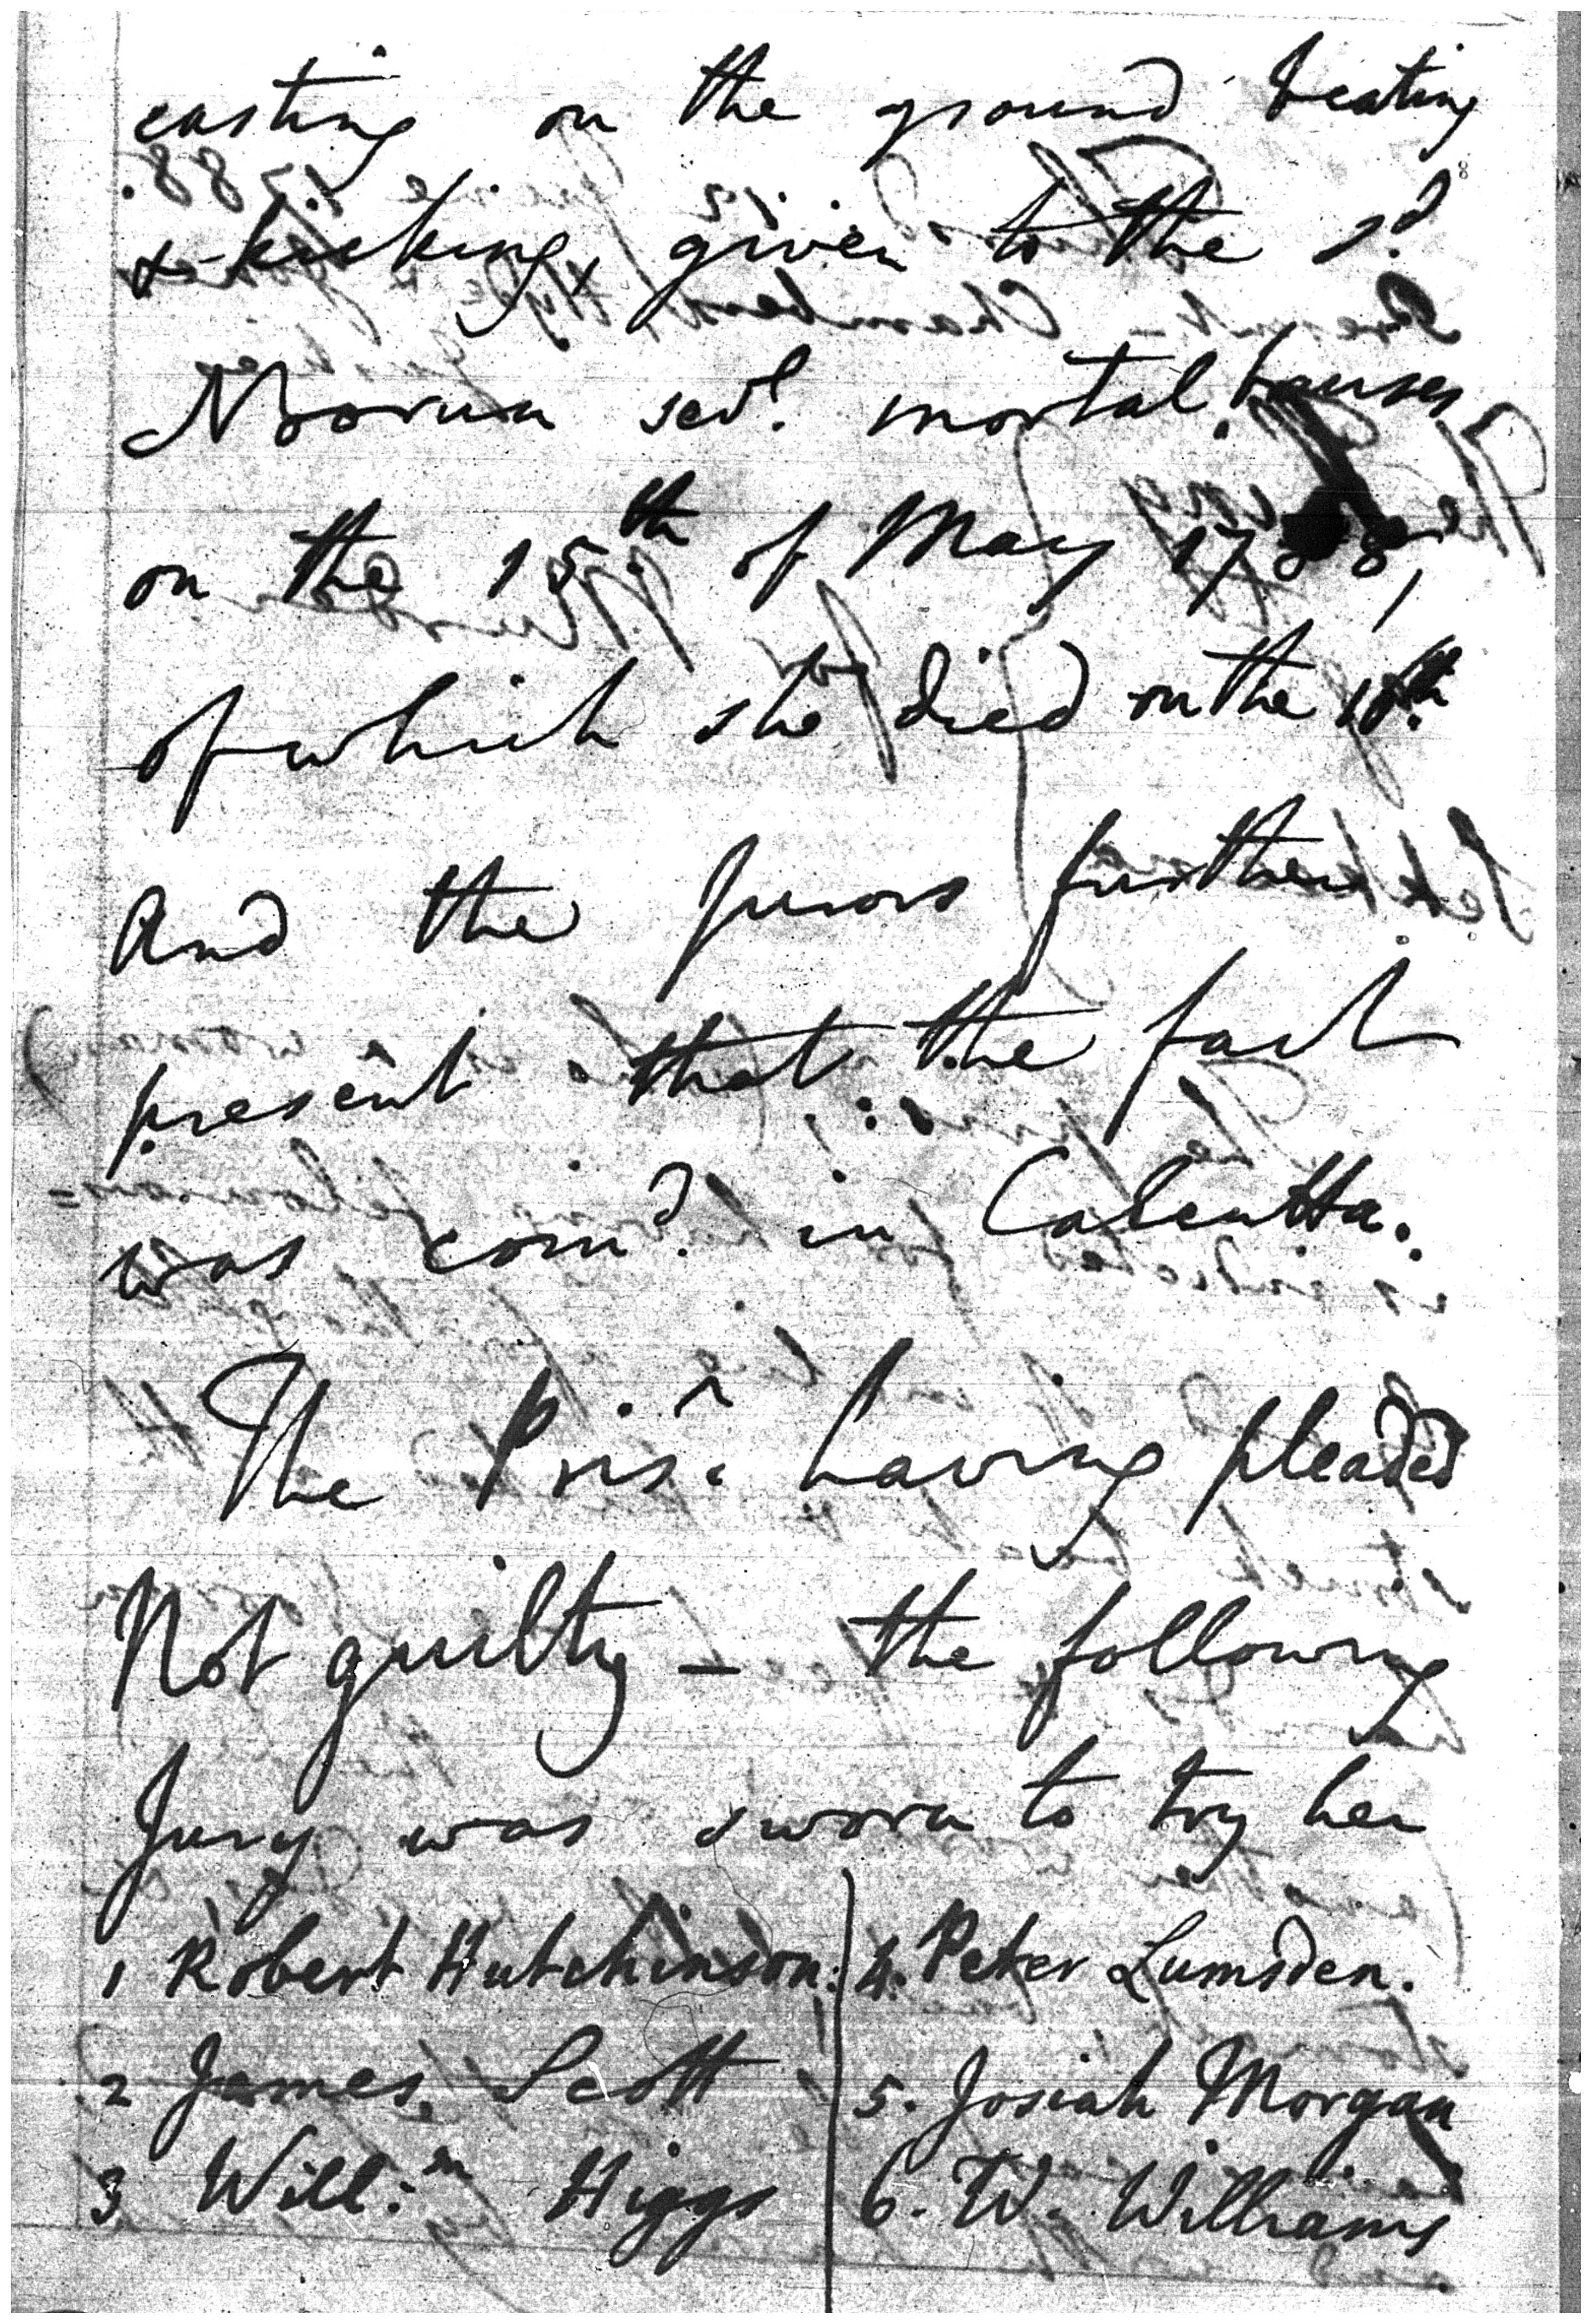 casting on the ground beating
& kicking, given to the sd.
Noorun sevl. mortal bruises
on the 15th of May 1788,
of which she died on the 18th
And the Jurors further
present that the fact
was com̃d. in Calcutta.
The Prisr. having pleaded
Not guilty — the following
Jury was sworn to try her
1 Robert Hutchinson. 4. Peter Lumsden.
2 James Scott 5. Josiah Morgan
3 Will:m Higgs 6. W. Williams